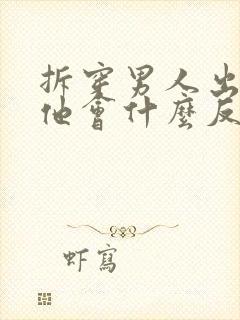 拆穿男人出
他會什麼反
虾寫